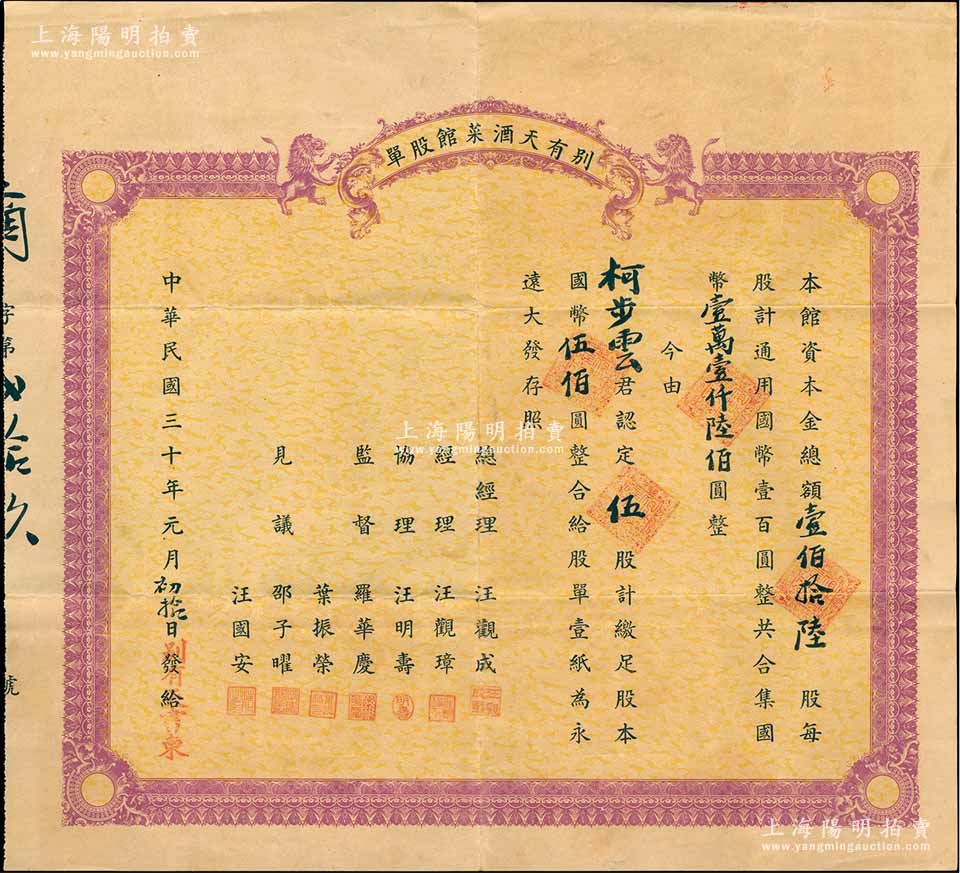 上海陽明拍賣
www.yangmingauction.com
別有天酒菜館股單
本館資本金總額壹佰拾陸股每
股計通用國幣壹百圓整共合集國
幣壹萬壹仟陸佰圓整
今由
柯步雲君認定伍股計繳足股本
國幣伍佰圓整合給股單壹紙為永
遠大發存照
總經理 汪觀成
經理 汪觀璋
協理 汪明壽
監督 羅華慶
葉振榮
見議 邵子曜
汪國安
中華民國三十年元月初拾日發給
字第 拾玖號
上海陽明拍賣
www.yangmingauction.com
上海陽明拍賣
www.yangmingauction.com